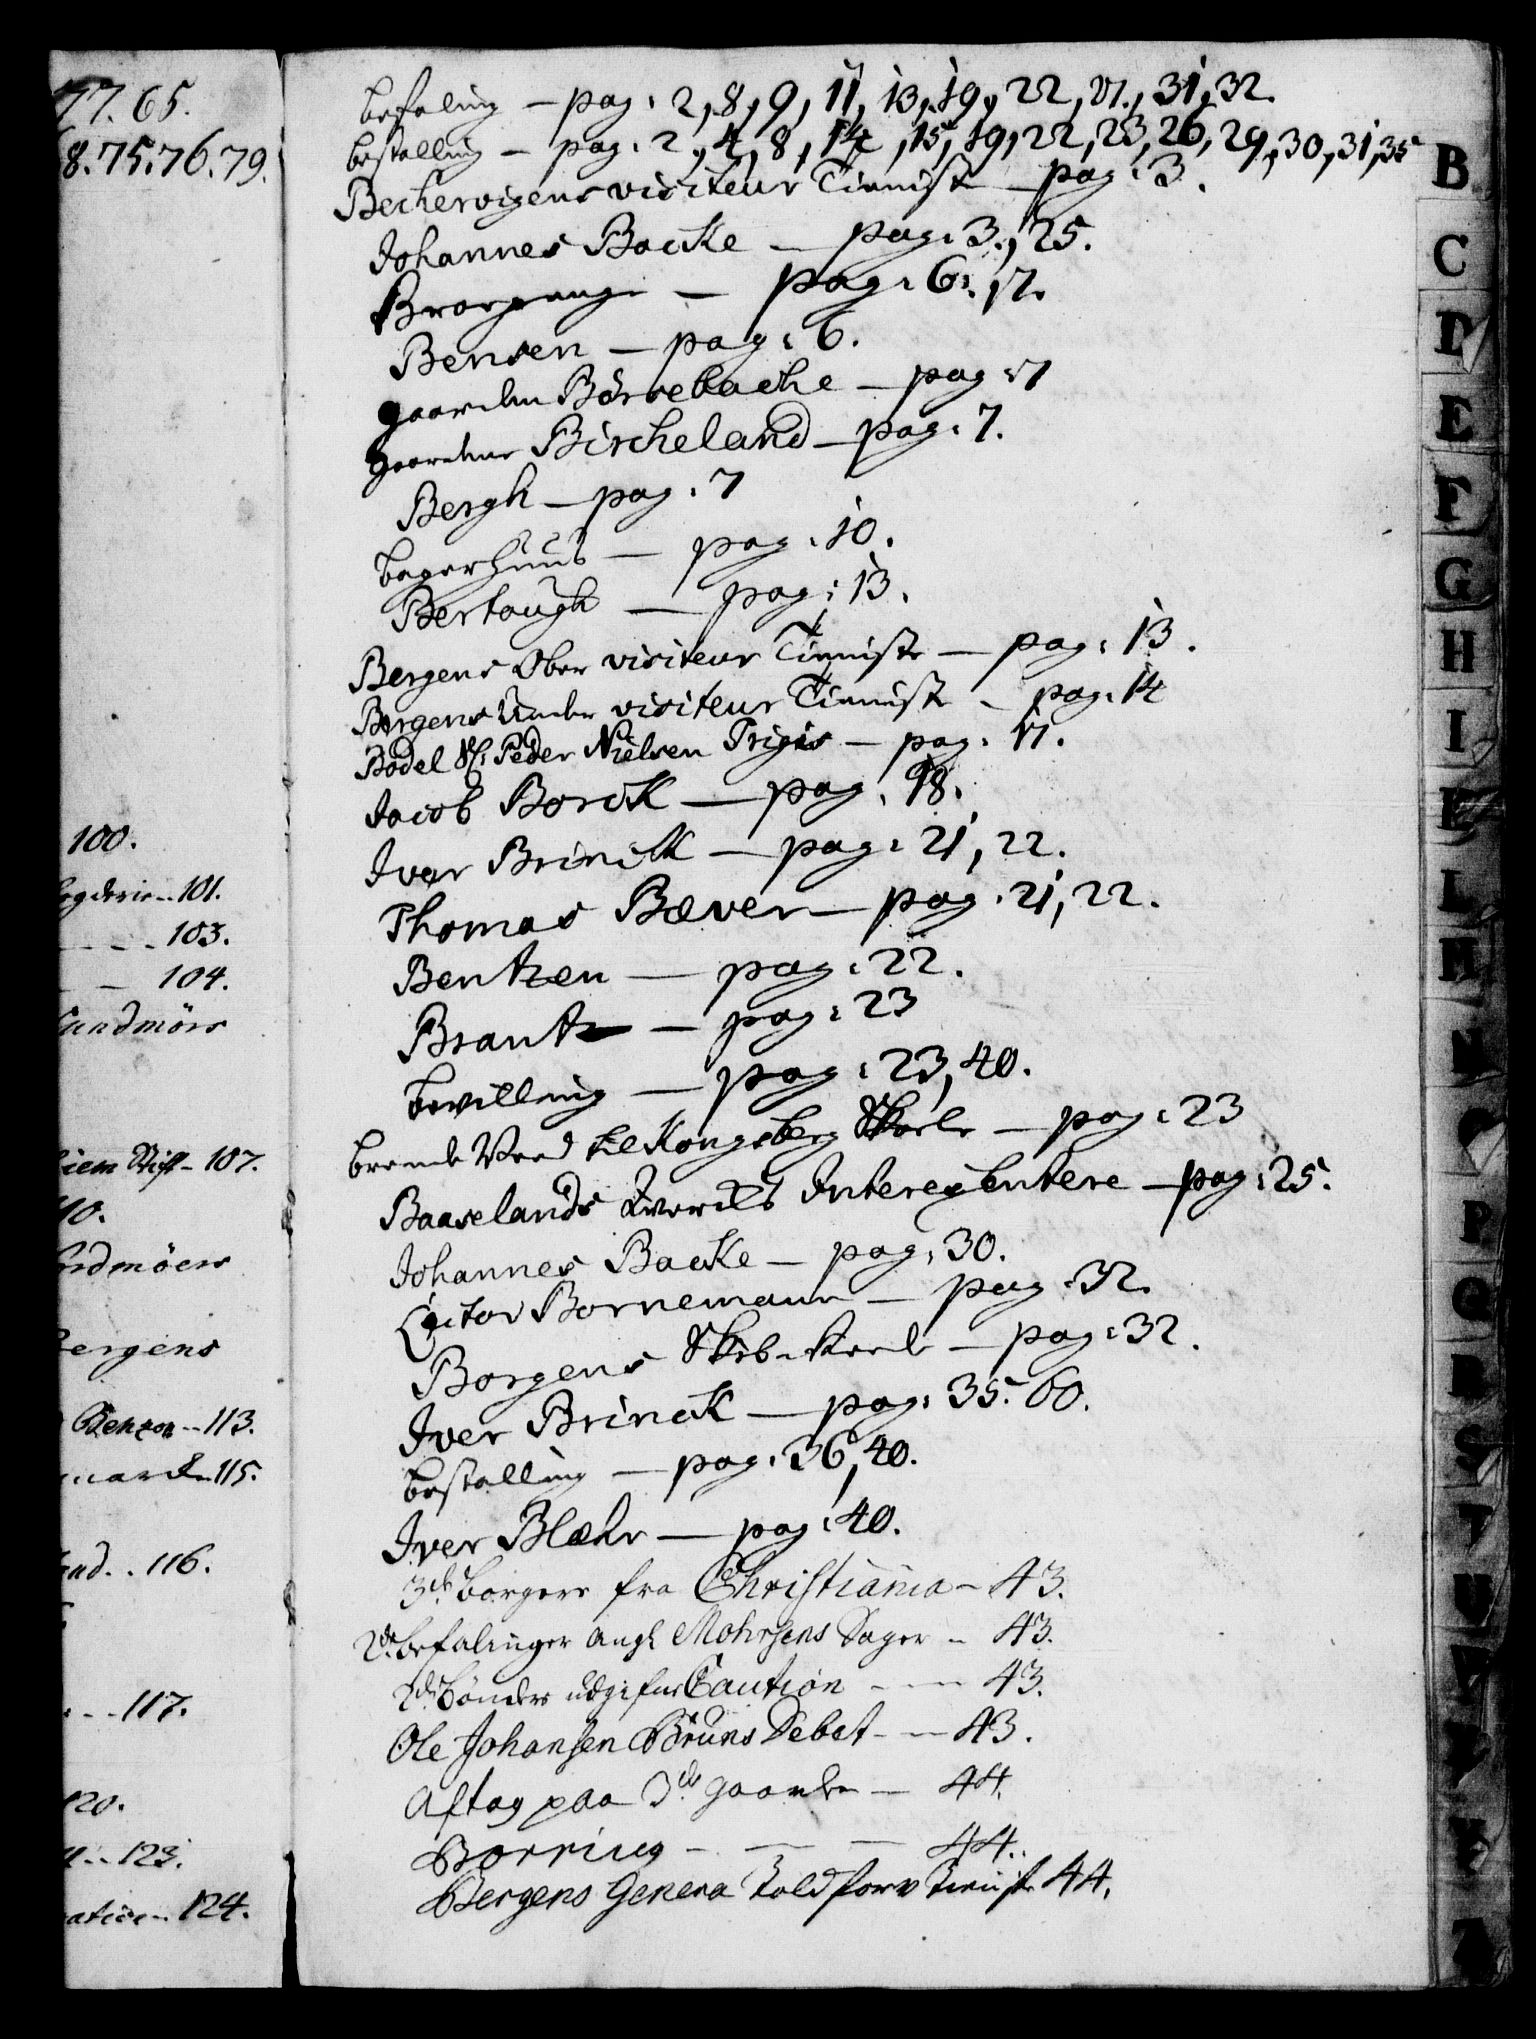 77. 65.
8. 75. 76. 79.
100.
101.
103.
104.
Sundmörs
107.
Nordmöers
Bergens
Benzon -- 113.
115.
116.
117.
120.
123.
124.
befaling — pag: 2, 8, 9, 11, 13, 19, 22, 27., 31, 32.
bestalling — pag: 2, 4, 8, 14, 15, 19, 22, 23, 26, 29, 30, 31, 35
Bechervigens visiteur Tieniste — pag: 3.
Johannes Backe — pag: 3., 25.
— pag: 6., 17.
Bensen — pag: 6.
gaarden Börsebache — pag: 7
gaarden Bircheland — pag: 7.
Bergh — pag: 7
bagerhuus — pag: 10.
Bertough — pag: 13.
Bergens Ober visiteur Tieniste — pag: 13.
Bergens Under visiteur Tieniste — pag: 14
Bodel Sl: Peder Nielsen Trigis — pag: 17.
Jacob Borck — pag: 18.
Iver Brinck — pag: 21, 22.
Thomas Bæver — pag: 21, 22.
Bentzen — pag: 22.
Brantz — pag: 23
bevilling — pag: 23, 40.
brende Veed til Kongsberg Skole — pag: 23
Baaselands Værcks Interessentere — pag: 25.
Johannes Backe — pag: 30.
Citov Bornemann — pag: 32.
Borgens Skib — pag: 32.
Iver Brinck — pag: 35. 60.
bestalling — pag: 36, 40.
Iver Blæhr — pag: 40.
3de borgere fra Christiania — 43.
2de befalinger ang: Mohrsens Sager — 43.
2de bönders udgifne Caution --- 43.
Ole Johansen Bruns Debet --- 43.
Aftag paa 3de gaarder — 44.
Borring - — — 44.
Bergens Genera Toldforv Tieniste 44.
B
C
D
E
F
G
H
I
K
L
M
N
O
P
Q
R
S
T
U